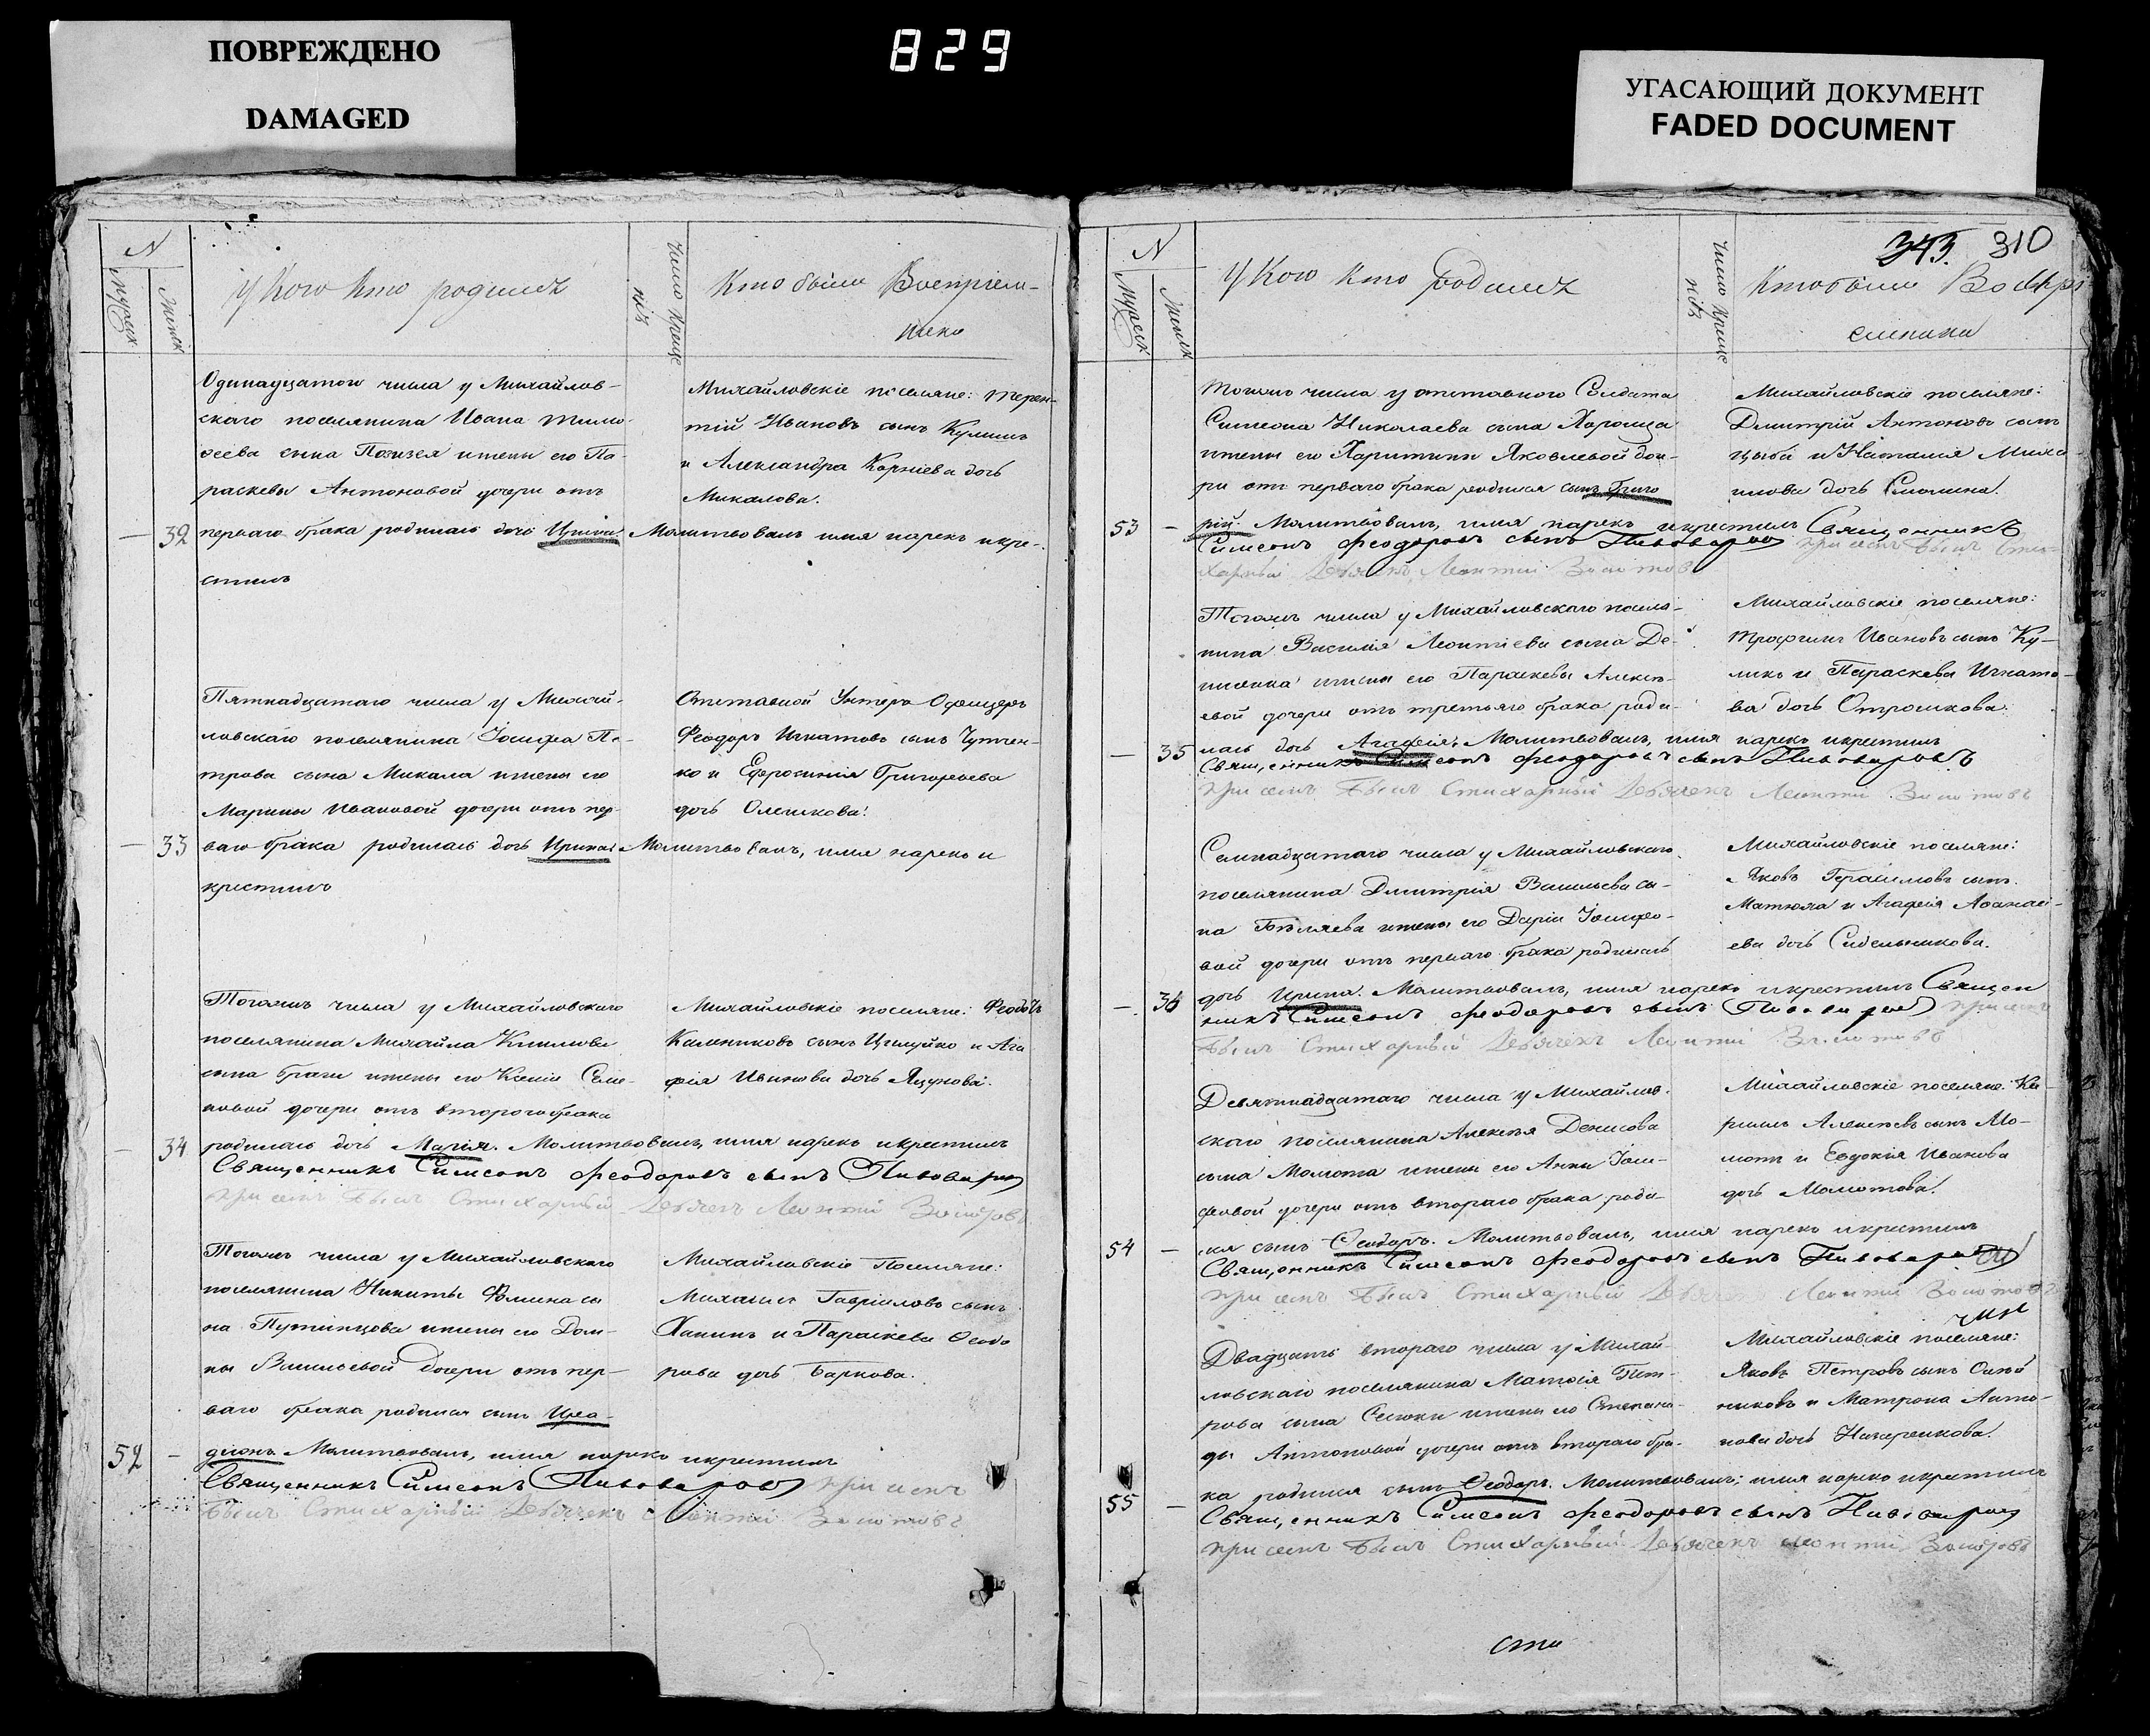 ПОВРЕЖДЕНО
DAMAGED
829
УГАСАЮЩИЙ ДОКУМЕНТ
FADED DOCUMENT
N
У Кого Кто родился
Число Креще
нія
Кто были Воспріем-
ники
Одинадцатого числа у Михайлов-
скаго поселянина Ивана Тимо-
ѳеева сына жены его Па-
раскевы Антоновой дочери отъ
32 перваго брака родилась дочь Ирина. Молитвовалъ имя нарекъ и кре-
стилъ
Михайловскіе поселяне: Терен-
тій Ивановъ сынъ Куликъ
и Александра Корніева дочь
Микалова.
Пятнадцатаго числа у Михай-
ловскаго поселянина Іосифа Пе-
трова сына Микала жены его
Марины Ивановой дочери отъ пер-
33 ваго брака родилась дочь Ирина. Молитвовалъ, имя нарекъ и
крестилъ
Отставной Унтеръ Офицеръ
Феодоръ Игнатовъ сынъ
и Ефросинія Григорьева
дочь Олешкова.
Тогожъ числа у Михайловского
поселянина Михайла Климова
сына жены его Ксеніи Семе-
новой дочери отъ второго брака
34 родилась дочь Марія. Молитвовалъ, имя нарекъ и крестилъ
Священникъ Симеонъ Феодоровъ сынъ Пивоваровъ
при семъ былъ Стихарный Дьячекъ Леонтій Золотовъ
Михайловскіе поселяне: Феодоръ
Калениковъ сынъ и Ага
фія Иванова дочь Яцунова.
Тогожъ числа у Михайловского
поселянина Никиты Фомина сы
на Путинцова жены его Дом-
ны Васильевой дочери отъ пер-
ваго брака родился сынъ Ира-
52 - діонъ Молитвовалъ, имя нарекъ и крестилъ
Священникъ Симеонъ Пивоваровъ при семъ
былъ Стихарный Дьячекъ Леонтій Золотовъ
Михайловскіе Поселяне:
Михаилъ Гавріиловъ сынъ
Ханинъ и Параскева Ѳеодо
рова дочь Баркова.
343. 310
N
У Кого Кто родился
Число Креще
нія
Кто были Воспрі
емники
Тогожъ числа у отставного Солдата
Симеона Николаева сына
жены его Харитины Яковлевой доч-
ри отъ перваго брака родился сынъ Григо
53 - рій. Молитвовалъ, имя нарекъ и крестилъ Священникъ
Симеонъ Феодоровъ сынъ Пивоваровъ при семъ былъ Сти-
харный Дьячекъ Леонтій Золотовъ
Михайловскіе поселяне:
Дмитрій Антоновъ сынъ
Цыба и Наталія Миха
илова дочь
Тогожъ числа у Михайловскаго поселя-
нина Василія Леонтіева сына Де-
жены его Параскевы Алексѣ-
евой дочери отъ третьяго брака роди-
35 лась дочь Агафія. Молитвовалъ, имя нарекъ и крестилъ
Священникъ Симеонъ Феодоровъ сынъ Пивоваровъ
при семъ былъ Стихарный Дьячекъ Леонтій Золотовъ
Михайловскіе поселяне:
Трофимъ Ивановъ сынъ Ку-
ликъ и Параскева Игнато-
ва дочь Отрошкова.
Семнадцатаго числа у Михайловскаго
поселянина Дмитрія Васильева сы-
на Бѣляева жены его Даріи Іосифо-
вой дочери отъ перваго брака родилась
36 дочь Ирина. Молитвовалъ, имя нарекъ и крестилъ Священ
никъ Симеонъ Феодоровъ сынъ Пивоваровъ при семъ
былъ Стихарный Дьячекъ Леонтій Золотовъ
Михайловскіе поселяне:
Яковъ Герасимовъ сынъ
Матюха и Агафія Аѳанасі-
ева дочь Сидельникова.
Девятнадцатаго числа у Михайлов-
скаго поселянина Алексѣя Денисова
сына Молота жены его Анны Іоси-
фовой дочери отъ втораго брака роди-
54 - лся сынъ Ѳеодоръ. Молитвовалъ, имя нарекъ и крестилъ
Священникъ Симеонъ Феодоровъ сынъ Пивоваровъ
при семъ былъ Стихарный Дьячекъ Леонтій Золотовъ
Михайловскіе поселяне: Ки-
рилъ Алексѣевъ сынъ Мо-
лотъ и Евдокія Иванова
дочь Молотова.
Двадцать втораго числа у Михай-
ловскаго поселянина Матѳія Пет-
рова сына жены его Степани-
ды Антоновой дочери отъ втораго бра-
55 - ка родился сынъ Ѳеодоръ. Молитвовалъ, имя нарекъ и крестилъ
Священникъ Симеонъ Феодоровъ сынъ Пивоваровъ
при семъ былъ Стихарный Дьячекъ Леонтій Золотовъ
Михайловскіе поселяне:
Яковъ Петровъ сынъ
и Матрона Анто-
нова дочь Назаренкова.